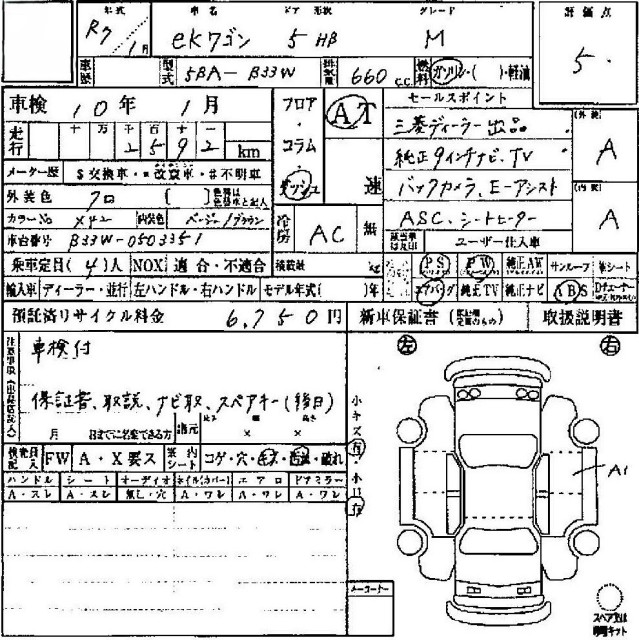 年式 車名 ドア 形状 グレード 評価点
R7 / 1月 eKワゴン 5 HB M 5.
車歴 型式 5BA-B33W 排気量 660 c.c. 燃料 ガソリン・( )・軽油
車検 10年 1月 フロア・コラム・ダッシュ AT 速 セールスポイント (外装) A
走行 十 万 千 百 十 一 2592 km 三菱ディーラー出品。
メーター歴 $交換車・*改ざん車・#不明車 純正9インチナビ、TV
外装色 クロ [ ] 色替は色替車と記入 バックカメラ、E-アシスト (内装) A
カラーNo X42 内装色 ベージュ/ブラウン 冷房 AC 無 ASC、シートヒーター
車台番号 B33W-0503351 ユーザー仕入車
乗車定員(4)人 NOX 適合・不適合 積載量 kg PS PW 純正AW サンルーフ 革シート
輸入車 ディーラー・並行 左ハンドル・右ハンドル モデル年式( )年 エアバッグ 純正TV 純正ナビ ABS
預託済リサイクル料金 6,750円 新車保証書 取扱説明書
注意事項(出品店記入) 車検付 左 右
保証書、取説、ナビ取、スペアキー(後日)
月 日までに名変できる方 諸元 長さ × 幅 × 高さ
検査員記入 FW A・X要ス 室内シート コゲ・穴・キズ・汚れ・破れ
小キズ有・小凹有
ハンドル シート オーディオ ネイル(カバー) エアロ ドアミラー
A・スレ A・スレ 無し・穴 A・ワレ A・ワレ A・ワレ
A1
メーカーナー
スペア又は修理キット